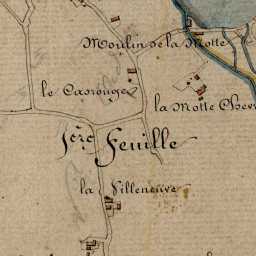 Moulin de la Motte
le Carrouge
la Motte Chev
1ère Feuille
la Villeneuve